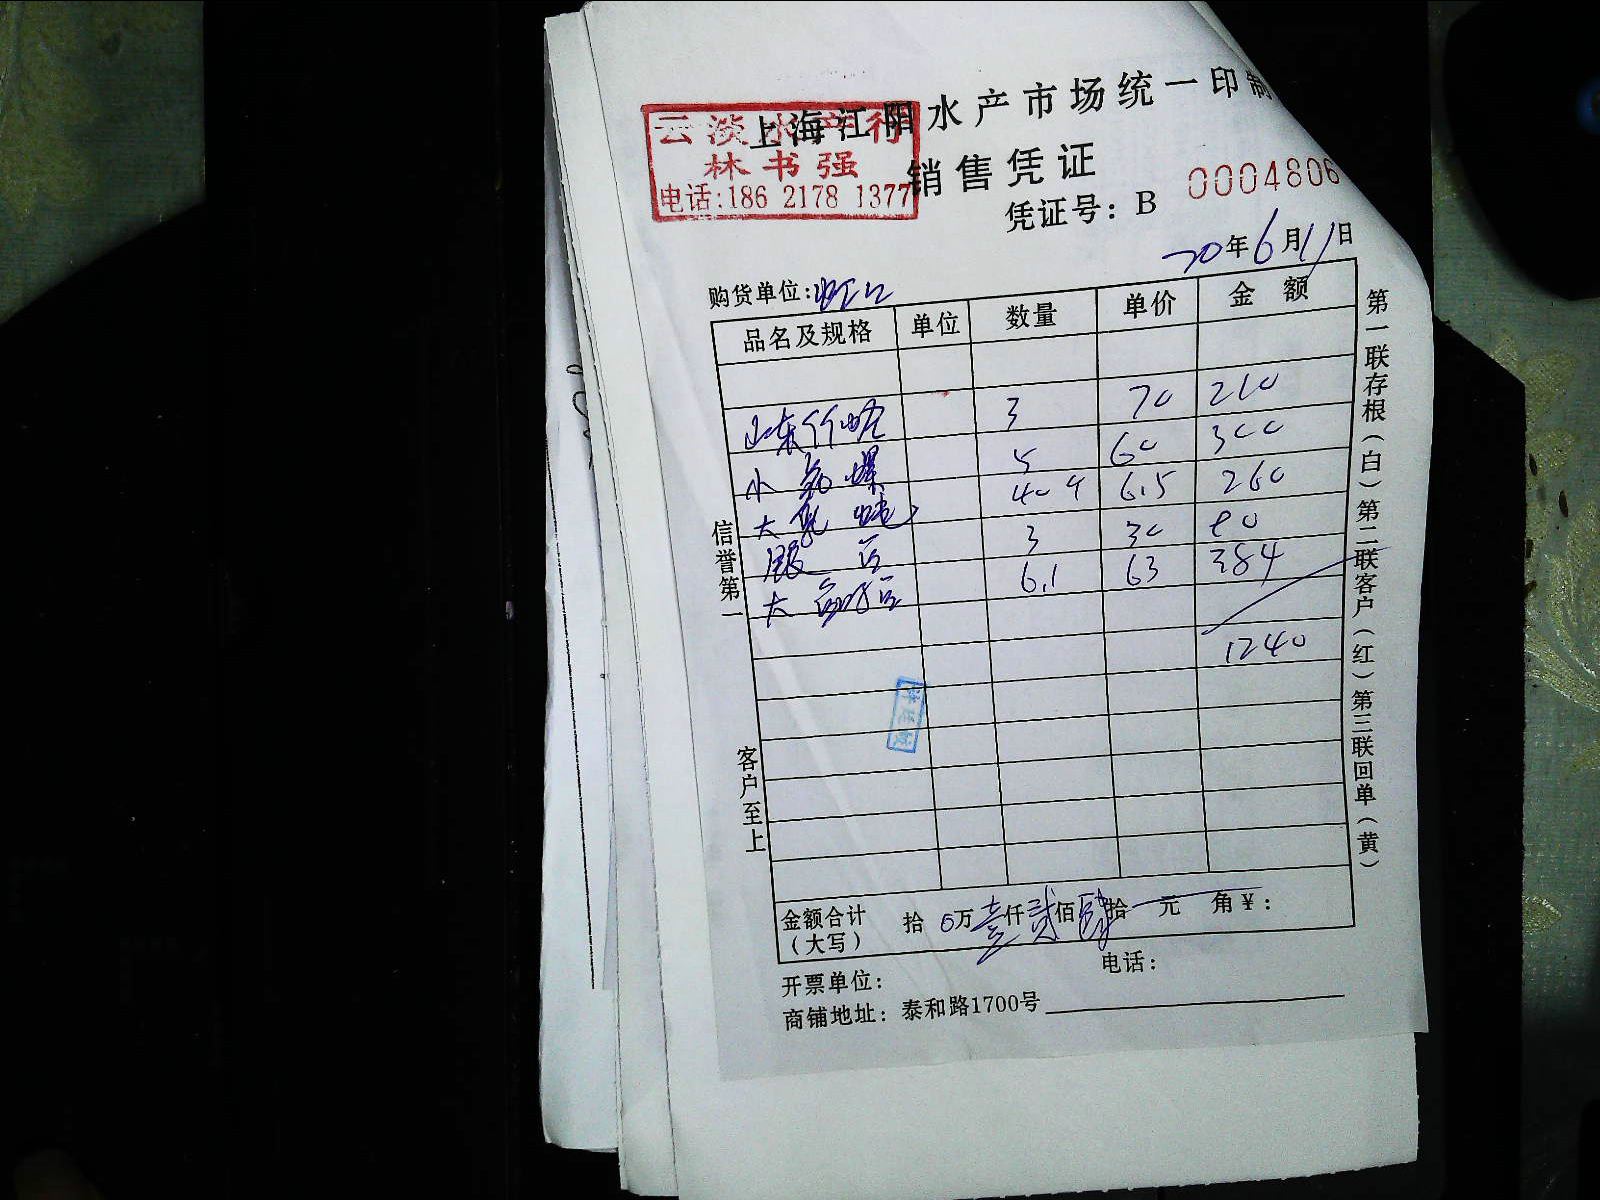 上海江阳水产市场统一印制
云淡水产行
林书强
电话:186 2178 1377
销售凭证
凭证号: B 0004806
20年6月11日
购货单位:虹口
品名及规格 单位 数量 单价 金额
山东竹蛏 3 70 210
小花螺 5 60 300
大 40斤 6.5 260
3 30 90
大 6.1 63 384
1240
金额合计 拾0万壹仟贰佰肆拾元角¥:
(大写)
开票单位: 电话:
商铺地址: 泰和路1700号
信誉第一
客户至上
第一联存根(白)第二联客户(红)第三联回单(黄)